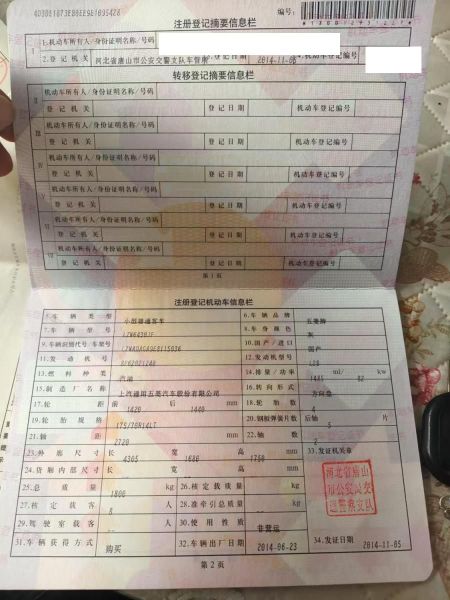 注册登记摘要信息栏
编号:
1.机动车所有人/身份证明名称/号码
2.登记机关 河北省唐山市公安交警支队车管所 2014-11-05
转移登记摘要信息栏
机动车所有人/身份证明名称/号码
登记机关 登记日期 机动车登记编号
机动车所有人/身份证明名称/号码
登记机关 登记日期 机动车登记编号
机动车所有人/身份证明名称/号码
登记机关 登记日期 机动车登记编号
机动车所有人/身份证明名称/号码
登记机关 登记日期 机动车登记编号
机动车所有人/身份证明名称/号码
登记机关 登记日期 机动车登记编号
机动车所有人/身份证明名称/号码
登记机关 登记日期 机动车登记编号
第1页
注册登记机动车信息栏
5.车辆类型 小型普通客车 6.车辆品牌 五菱牌
7.车辆型号 8.车身颜色 灰
9.车辆识别代号/车架号 10.国产/进口 国产
11.发动机号 12.发动机型号
13.燃料种类 汽油 14.排量/功率 1485 ml/ 82 kw
15.制造厂名称 上汽通用五菱汽车股份有限公司 16.转向形式 方向盘
17.轮距 前 1420 后 1440 mm 18.轮胎数 4
19.轮胎规格 175/70R14LT 20.钢板弹簧片数 后轴 5
21.轴距 2720 mm 22.轴数 2
23.外廓尺寸 长 4305 宽 1686 高 1750 mm 33.发证机关章
24.货厢内部尺寸 长 宽 高 mm
25.总质量 1800 kg 26.核定载质量 kg
27.核定载客 8 人 28.准牵引总质量 kg
29.驾驶室载客 人 30.使用性质 非营运
31.车辆获得方式 购买 32.车辆出厂日期 2014-06-23 34.发证日期 2014-11-05
河北省唐山
市公安交
通警察支队
第2页